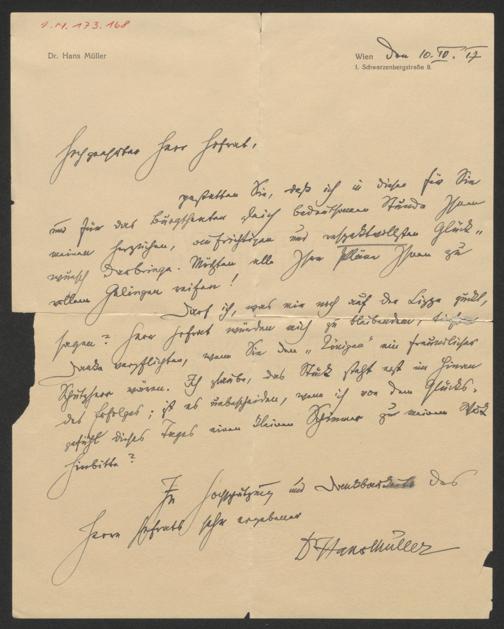 1.M.173.168
Dr. Hans Müller
Wien den 10. IV. 17
I. Schwarzenbergstraße 8.
Hochgeehrter Herr Hofrat,
gestatten Sie, daß ich in dieser für Sie
und für das Burgtheater gleich bedeutsamen Stunde Ihnen
meinen herzlichen, aufrichtigen und respektvollsten Glück-
wunsch darbringe. Möchten alle Ihre Pläne Ihnen zu
vollem Gelingen reifen!
Darf ich, was mir noch auf der Lippe zuckt,
sagen? Herr Hofrat würden mich zu bleibendem,
Danke verpflichten, wenn Sie den „Königen" ein freundlicher
Schutzherr wären. Ich glaube, das Stück steht erst im Beginn
des Erfolges; ist es unbescheiden, wenn ich von dem Glücks-
gefühl dieses Tages einen kleinen Schimmer zu meinem Stück
hinbitte?
In Hochschätzung und Dankbarkeit des
Herrn Hofrats sehr ergebener
Dr Hans Müller